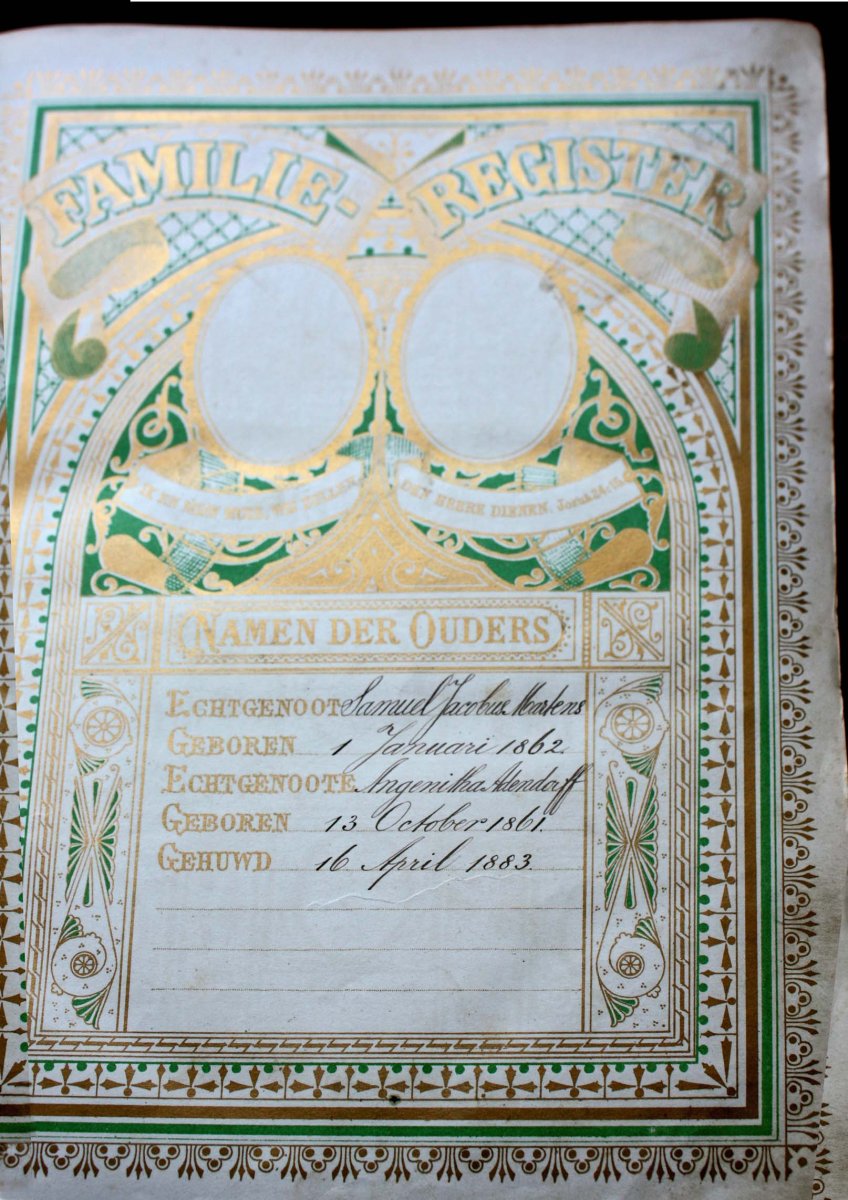 FAMILIE-REGISTER
IK EN MIJN HUIS, WIJ ZULLEN
DEN HEERE DIENEN. Josua 24:15
NAMEN DER OUDERS
ECHTGENOOT Samuel Jacobus Martens
GEBOREN 1 Januari 1862.
ECHTGENOOTE Angenitha Adendorff
GEBOREN 13 October 1861.
GEHUWD 16 April 1883.